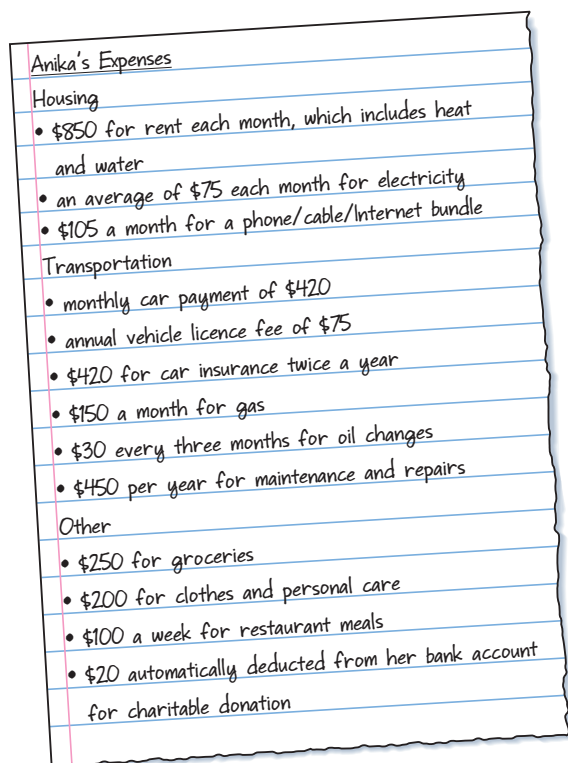 Anika's Expenses
Housing
• $850 for rent each month, which includes heat
and water
• an average of $75 each month for electricity
• $105 a month for a phone/cable/Internet bundle
Transportation
• monthly car payment of $420
• annual vehicle licence fee of $75
• $420 for car insurance twice a year
• $150 a month for gas
• $30 every three months for oil changes
• $450 per year for maintenance and repairs
Other
• $250 for groceries
• $200 for clothes and personal care
• $100 a week for restaurant meals
• $20 automatically deducted from her bank account
for charitable donation